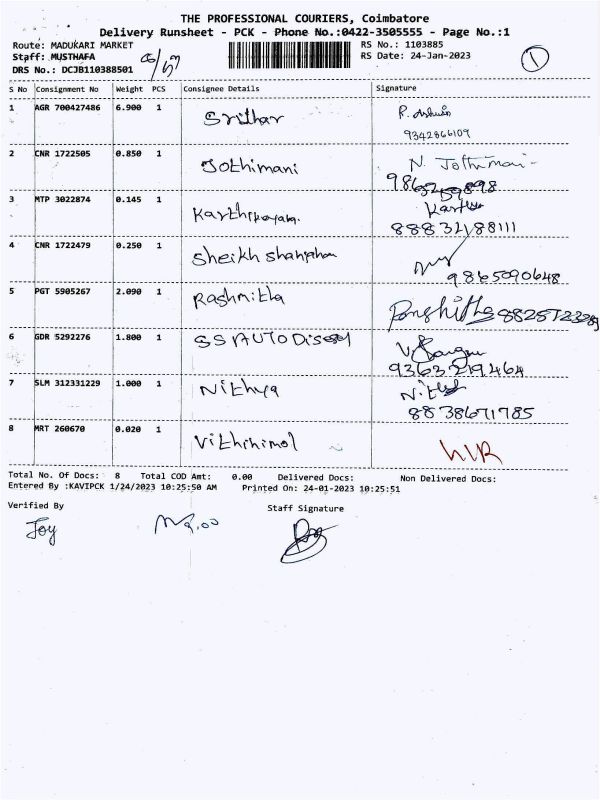 THE PROFESSIONAL COURIERS, Coimbatore
Delivery Runsheet - PCK - Phone No.:0422-3505555 - Page No.:1
Route: MADUKARI MARKET RS No.: 1103885
Staff: MUSTHAFA RS Date: 24-Jan-2023 1
DRS No.: DCJB110388501
S No Consignment No Weight PCS Consignee Details Signature
1 AGR 700427486 6.900 1 Srithar
9342866109
2 CNR 1722505 0.850 1 Jothimani N. Jothimani
3 MTP 3022874 0.145 1
4 CNR 1722479 0.250 1 Sheikh
9865090648
5 PGT 5905267 2.090 1 Rashmitha
6 GDR 5292276 1.800 1 SS AUTO Diesel
9363219464
7 SLM 312331229 1.000 1 Nithya
8838671785
8 MRT 260670 0.020 1
Total No. Of Docs: 8 Total COD Amt: 0.00 Delivered Docs: Non Delivered Docs:
Entered By :KAVIPCK 1/24/2023 10:25:50 AM Printed On: 24-01-2023 10:25:51
Verified By Staff Signature
Joy